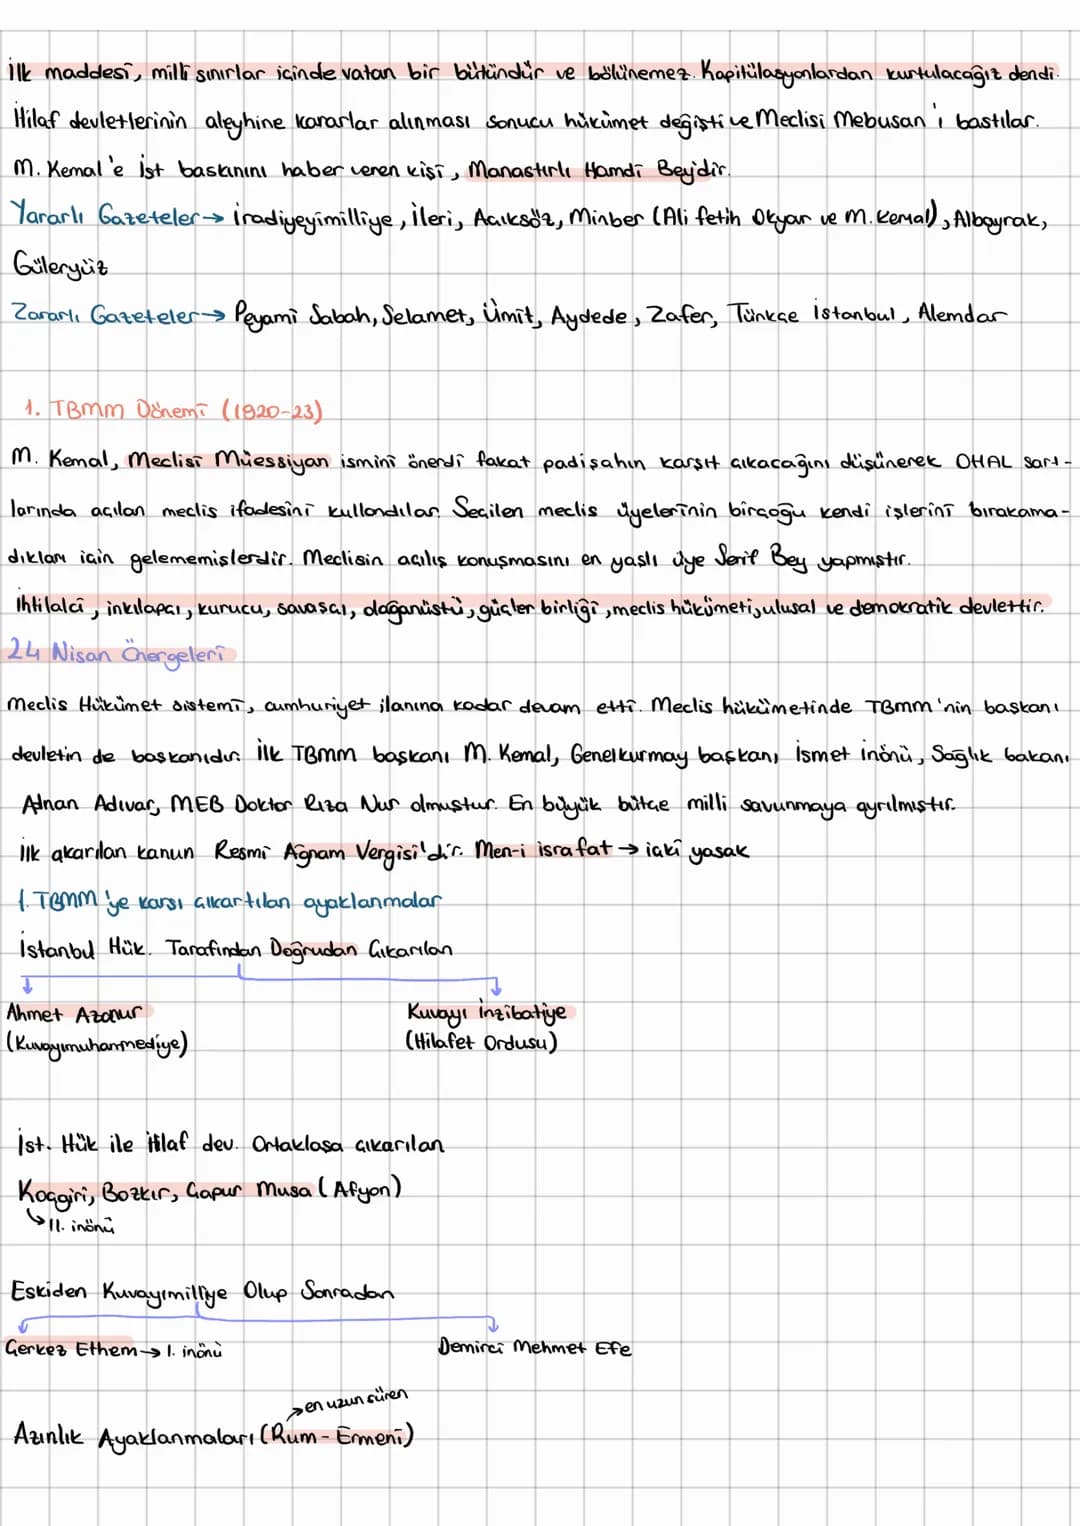 İlk maddesi, milli sınırlar içinde vatan bir bütündür ve bölünemez. Kapitülasyonlardan kurtulacağız dendi.
İtilaf devletlerinin aleyhine kararlar alınması sonucu hükümet değişti ve Meclisi Mebusan'ı bastılar.
M. Kemal'e İst baskınını haber veren kişi, Manastırlı Hamdi Bey'dir.
Yararlı Gazeteler → iradiyeyimilliye, İleri, Açıksöz, Minber (Ali fetih Okyar ve M. Kemal), Albayrak,
Güleryüz
Zararlı Gazeteler → Peyami Sabah, Selamet, Ümit, Aydede, Zafer, Türkçe İstanbul, Alemdar
1. TBMM Dönemi (1920-23)
M. Kemal, Meclisi Müessiyan ismini önerdi fakat padişahın karşıt çıkacağını düşünerek OHAL şart-
larında açılan meclis ifadesini kullandılar. Seçilen meclis üyelerinin birçoğu kendi işlerini bırakama-
dıkları için gelememişlerdir. Meclisin açılış konuşmasını en yaşlı üye Şerif Bey yapmıştır.
İhtilalci, inkılapçı, kurucu, savaşçı, olağanüstü, güçler birliği, meclis hükümeti, ulusal ve demokratik devlettir.
24 Nisan Önergeleri
Meclis Hükümet sistemi, cumhuriyet ilanına kadar devam etti. Meclis hükümetinde TBMM'nin başkanı
devletin de başkanıdır. İlk TBMM başkanı M. Kemal, Genelkurmay başkanı İsmet İnönü, Sağlık bakanı
Adnan Adıvar, MEB Doktor Rıza Nur olmuştur. En büyük bütçe milli savunmaya ayrılmıştır.
İlk çıkarılan kanun Resmi Ağnam Vergisi'dir. Men-i israfat → içki yasak
1. TBMM'ye karşı çıkartılan ayaklanmalar
İstanbul Hük. Tarafından Doğrudan Çıkarılan
Ahmet Azanur Kuvayı İnzibatiye
(Kuvayımuhammediye) (Hilafet Ordusu)
İst. Hük ile İtilaf dev. Ortaklaşa çıkarılan
Koçgiri, Bozkır, Çapur Musa (Afyon)
↳ II. inönü
Eskiden Kuvayımilliye Olup Sonradan
Çerkez Ethem → I. inönü Demirci Mehmet Efe
→ en uzun süren
Azınlık Ayaklanmaları (Rum - Ermeni)